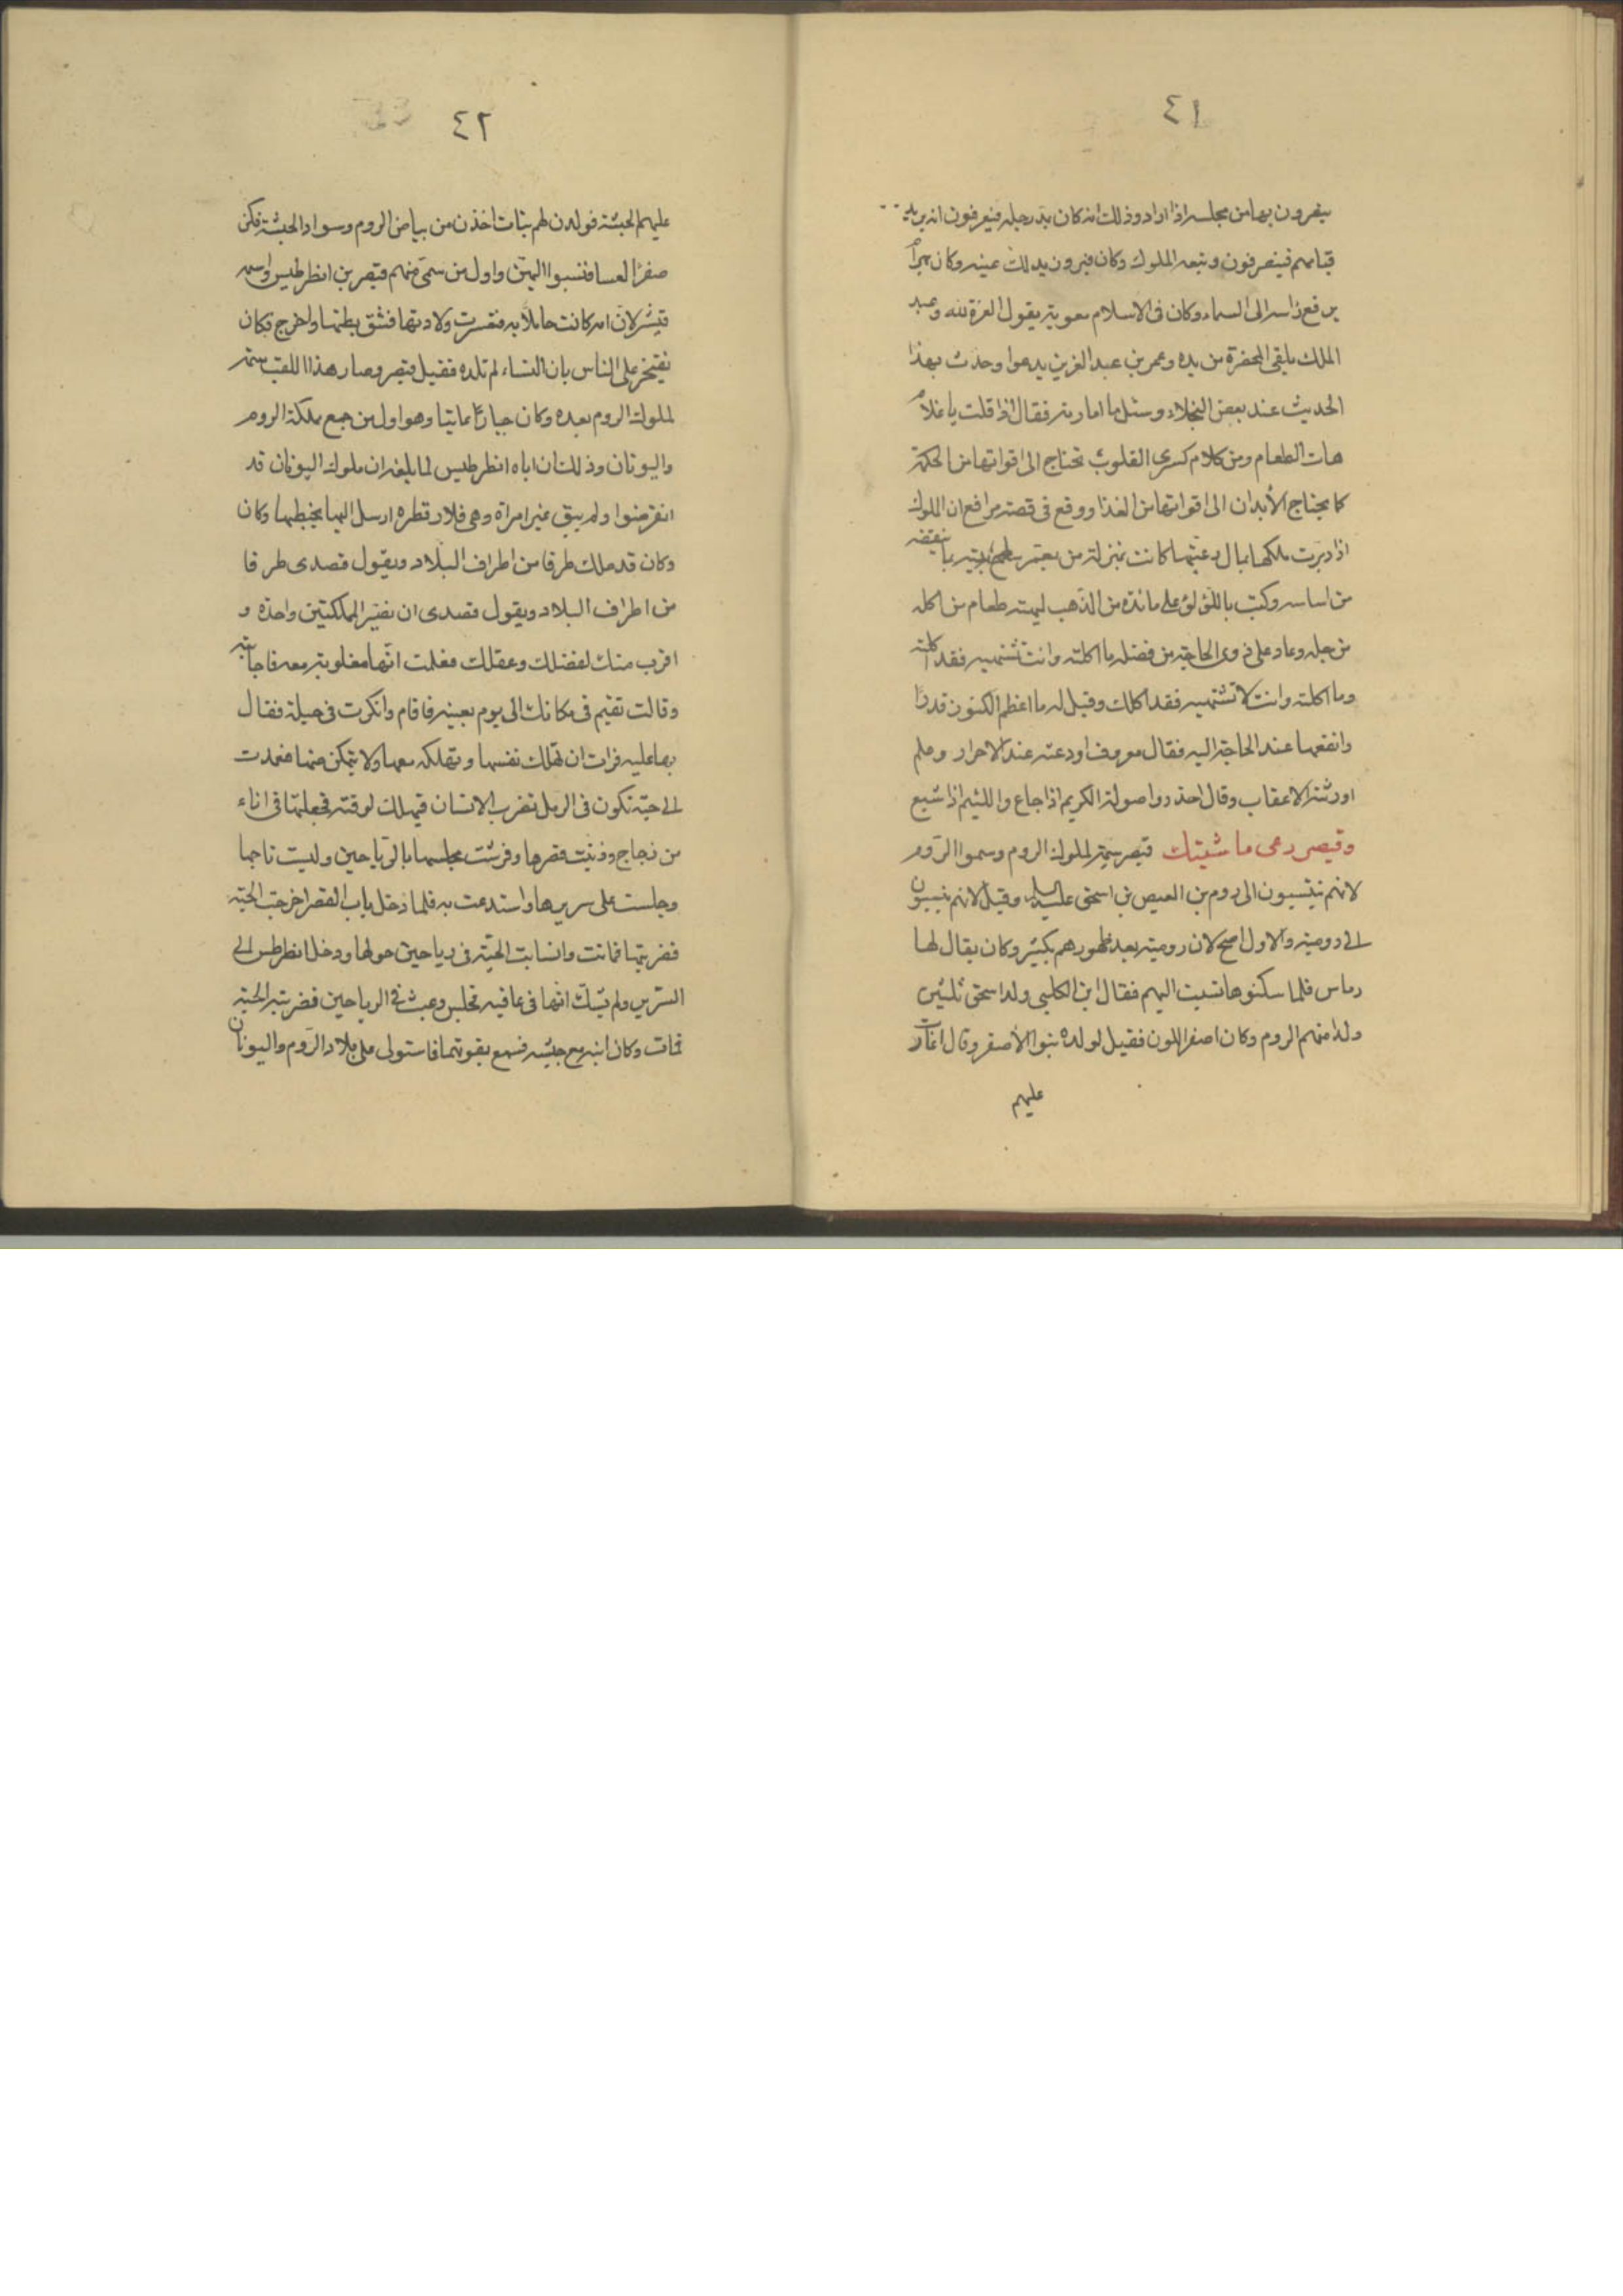 ٤١
ينفرون بها من مجلسه اذا اراد وذلك انه كان يمد رجله فيعرفون انه يريد
قيامهم فينصرفون وتبعه الملوك وكان فيرون يدلك عينه وكان بهرام
يرفع راسه الى السماء وكان فى الاسلام معوية يقول العزة لله وعبد
الملك يلقى المخصرة من يده وعمر بن عبد العزيز يدعوا وحدث بهذا
الحديث عند بعض البخلاء وسئل ما امارته فقال اذا قلت يا غلام
هات الطعام ومن كلام كسرى القلوب تحتاج الى اقواتها من الحكمة
كما يحتاج الأبدان الى اقواتها من الغذا ووقع فى قصة مرافع ان الملوك
اذا دبرت ملكها بمال رعيتها كانت بمنزلة من يعمر سطح بيته بما ينقضه
من اساسه وكتب باللؤلؤ على مائدة من الذهب ليهنه طعام من اكله
من حله وعاد على ذوى الحاجة من فضله ما اكلته وانت تشتهيه فقد اكلته
وما اكلته وانت لا تشتهيه فقد اكلك وقيل له ما اعظم الكنوز قدرا
وانفعها عند الحاجة اليه فقال معروف اودعته عند الاحرار وعلم
اورثته الاعقاب وقال احذروا صولة الكريم اذا جاع واللئيم اذا شبع
وقيصر رعى ما شيتك قيصر سمة لملوك الروم وسموا الروم
لانهم ينتسبون الى روم بن العيص بن اسحق عليه السلام وقيل لانهم ينسبون
الى رومية والاول اصح لان رومية بعد ظهورهم بكثير وكان يقال لها
رماس فلما سكنوها نسبت اليهم فقال ابن الكلبى ولد اسحق ثلثين
ولدا منهم الروم وكان اصفر اللون فقيل لولده بنوا الأصفر وقال اغارت
عليهم
٤٢
عليهم الحبشة فولدن لهم بنات اخذن من بياض الروم وسواد الحبشة فكن
صفرا لعسا فنسبوا اليهن واول من سمى منهم قيصر بن انظرطيس واسمه
قيشر لان امه كانت حاملا به فتعسرت ولادتها فشق بطنها واخرج فكان
يفتخر على الناس بان النساء لم تلده فقيل قيصر وصار هذا اللقب سمة
لملوك الروم بعده وكان جبارا عاتيا وهو اول من جمع مملكة الروم
واليونان وذلك ان اباه انظرطيس لما بلغه ان ملوك اليونان قد
انقرضوا ولم يبق غير امراة وهى قلارقطره ارسل اليها يخطبها وكان
وكان قد ملك طرفا من اطراف البلاد ويقول قصدى طرفا
من اطراف البلاد ويقول قصدى ان نصير المملكتين واحدة و
اقرب منك لفضلك وعقلك فعلمت انها مغلوبة معه فاجابته
وقالت تقيم فى مكانك الى يوم بعينه فاقام وانكرت فى حيلة فقال
بها عليه فرات ان تهلك نفسها وتهلكه معها ولا يتمكن منها فعمدت
الى حية تكون فى الرمل تضرب الانسان فيهلك لوقته فجعلتها فى اناء
من زجاج وزينت قصرها وفرشت مجلسها بالرياحين ولبست تاجها
وجلست على سريرها واستدعت به فلما دخل باب القصر اخرجت الحية
فضربتها فماتت وانسابت الحية فى رياحين حولها ودخل انظرطس الى
السرير ولم يشك انها فى عافيه فجلس وعبث فى الرياحين فضربته الحية
فمات وكان ابنه مع جيشه فسمع بقوتهما فاستولى على بلاد الروم واليونان